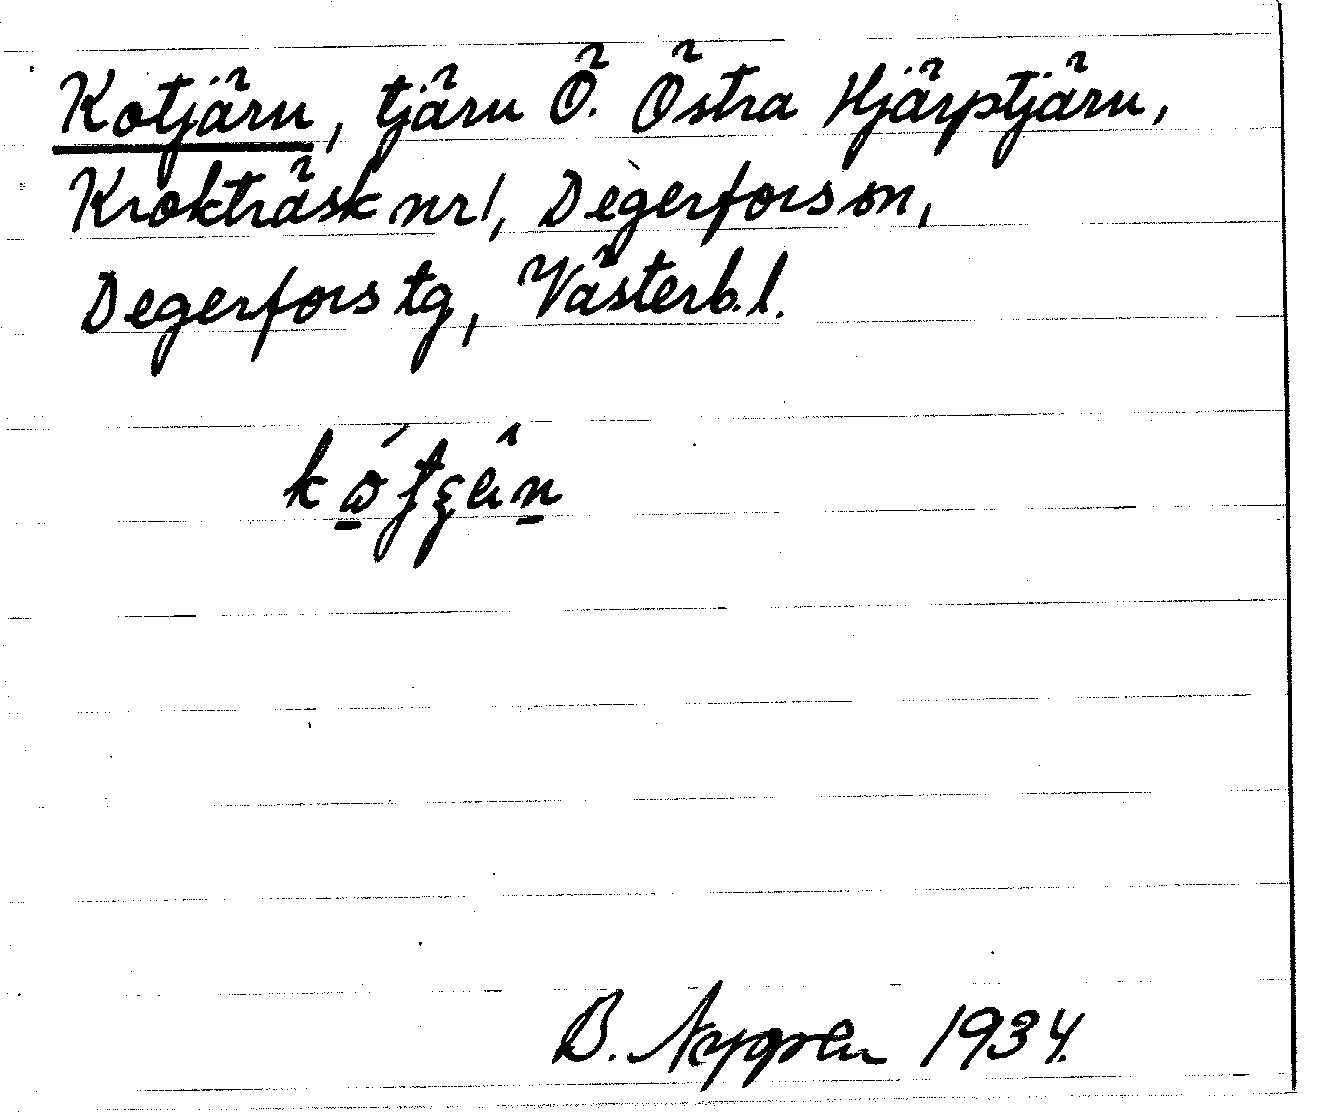 Kotjärn, tjärn Ö. Östra Hjärptjärn,
Krokträsk nr 1, Degerfors sn,
Degerfors tg, Västerb. l.
B. Nygren 1934.